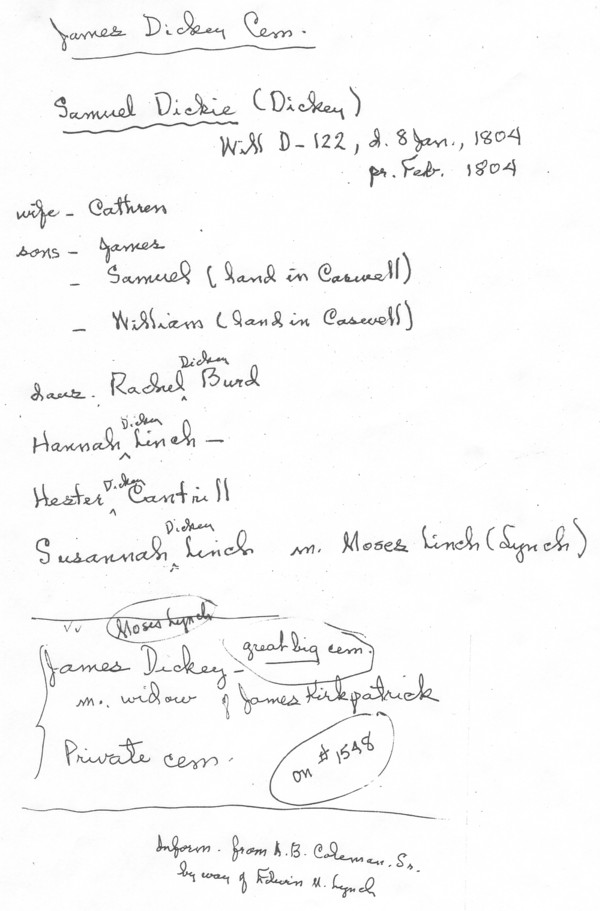 James Dickey Cem.
Samuel Dickie (Dickey)
Will D-122, d. 8 Jan., 1804
pr. Feb. 1804
wife - Cathren
sons - James
- Samuel (land in Caswell)
- William (land in Caswell)
daus. Rachel Dickey Burd
Hannah Dickey Linch -
Hester Dickey Cantrill
Susannah Dickey Linch m. Moses Linch (Lynch)
Moses Lynch
James Dickey - great big cem.
m. widow of James Kirkpatrick
Private cem.
on #1548
Inform. from A.B. Coleman. Sr.
by way of Edwin M. Lynch